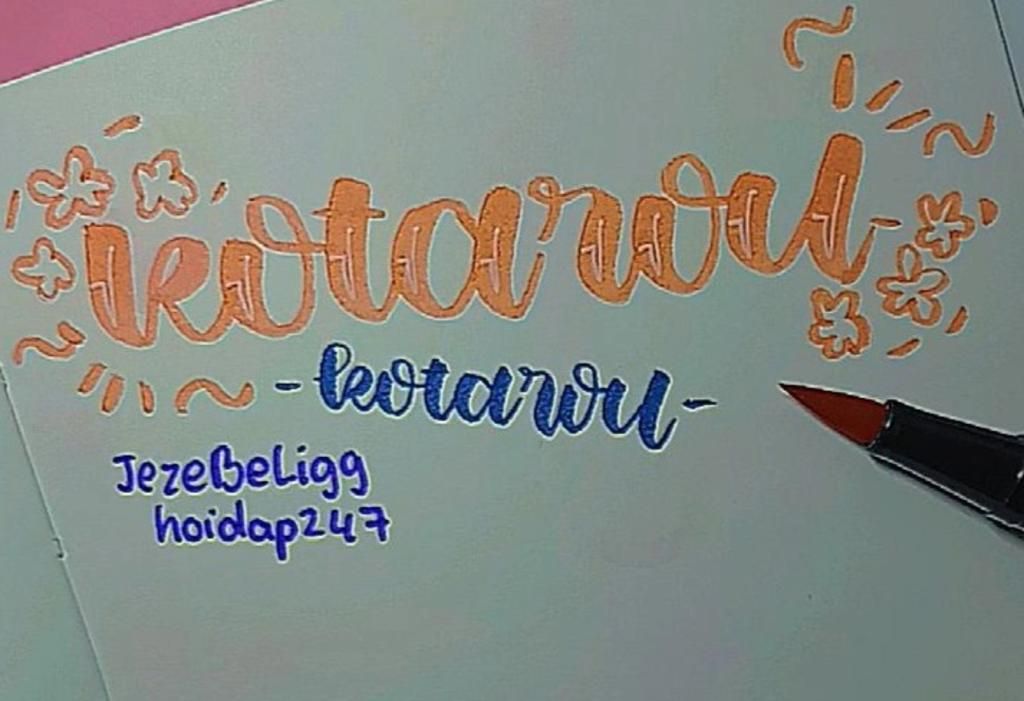 kotarou
-kotarou-
JezeBeLigg
hoidap247